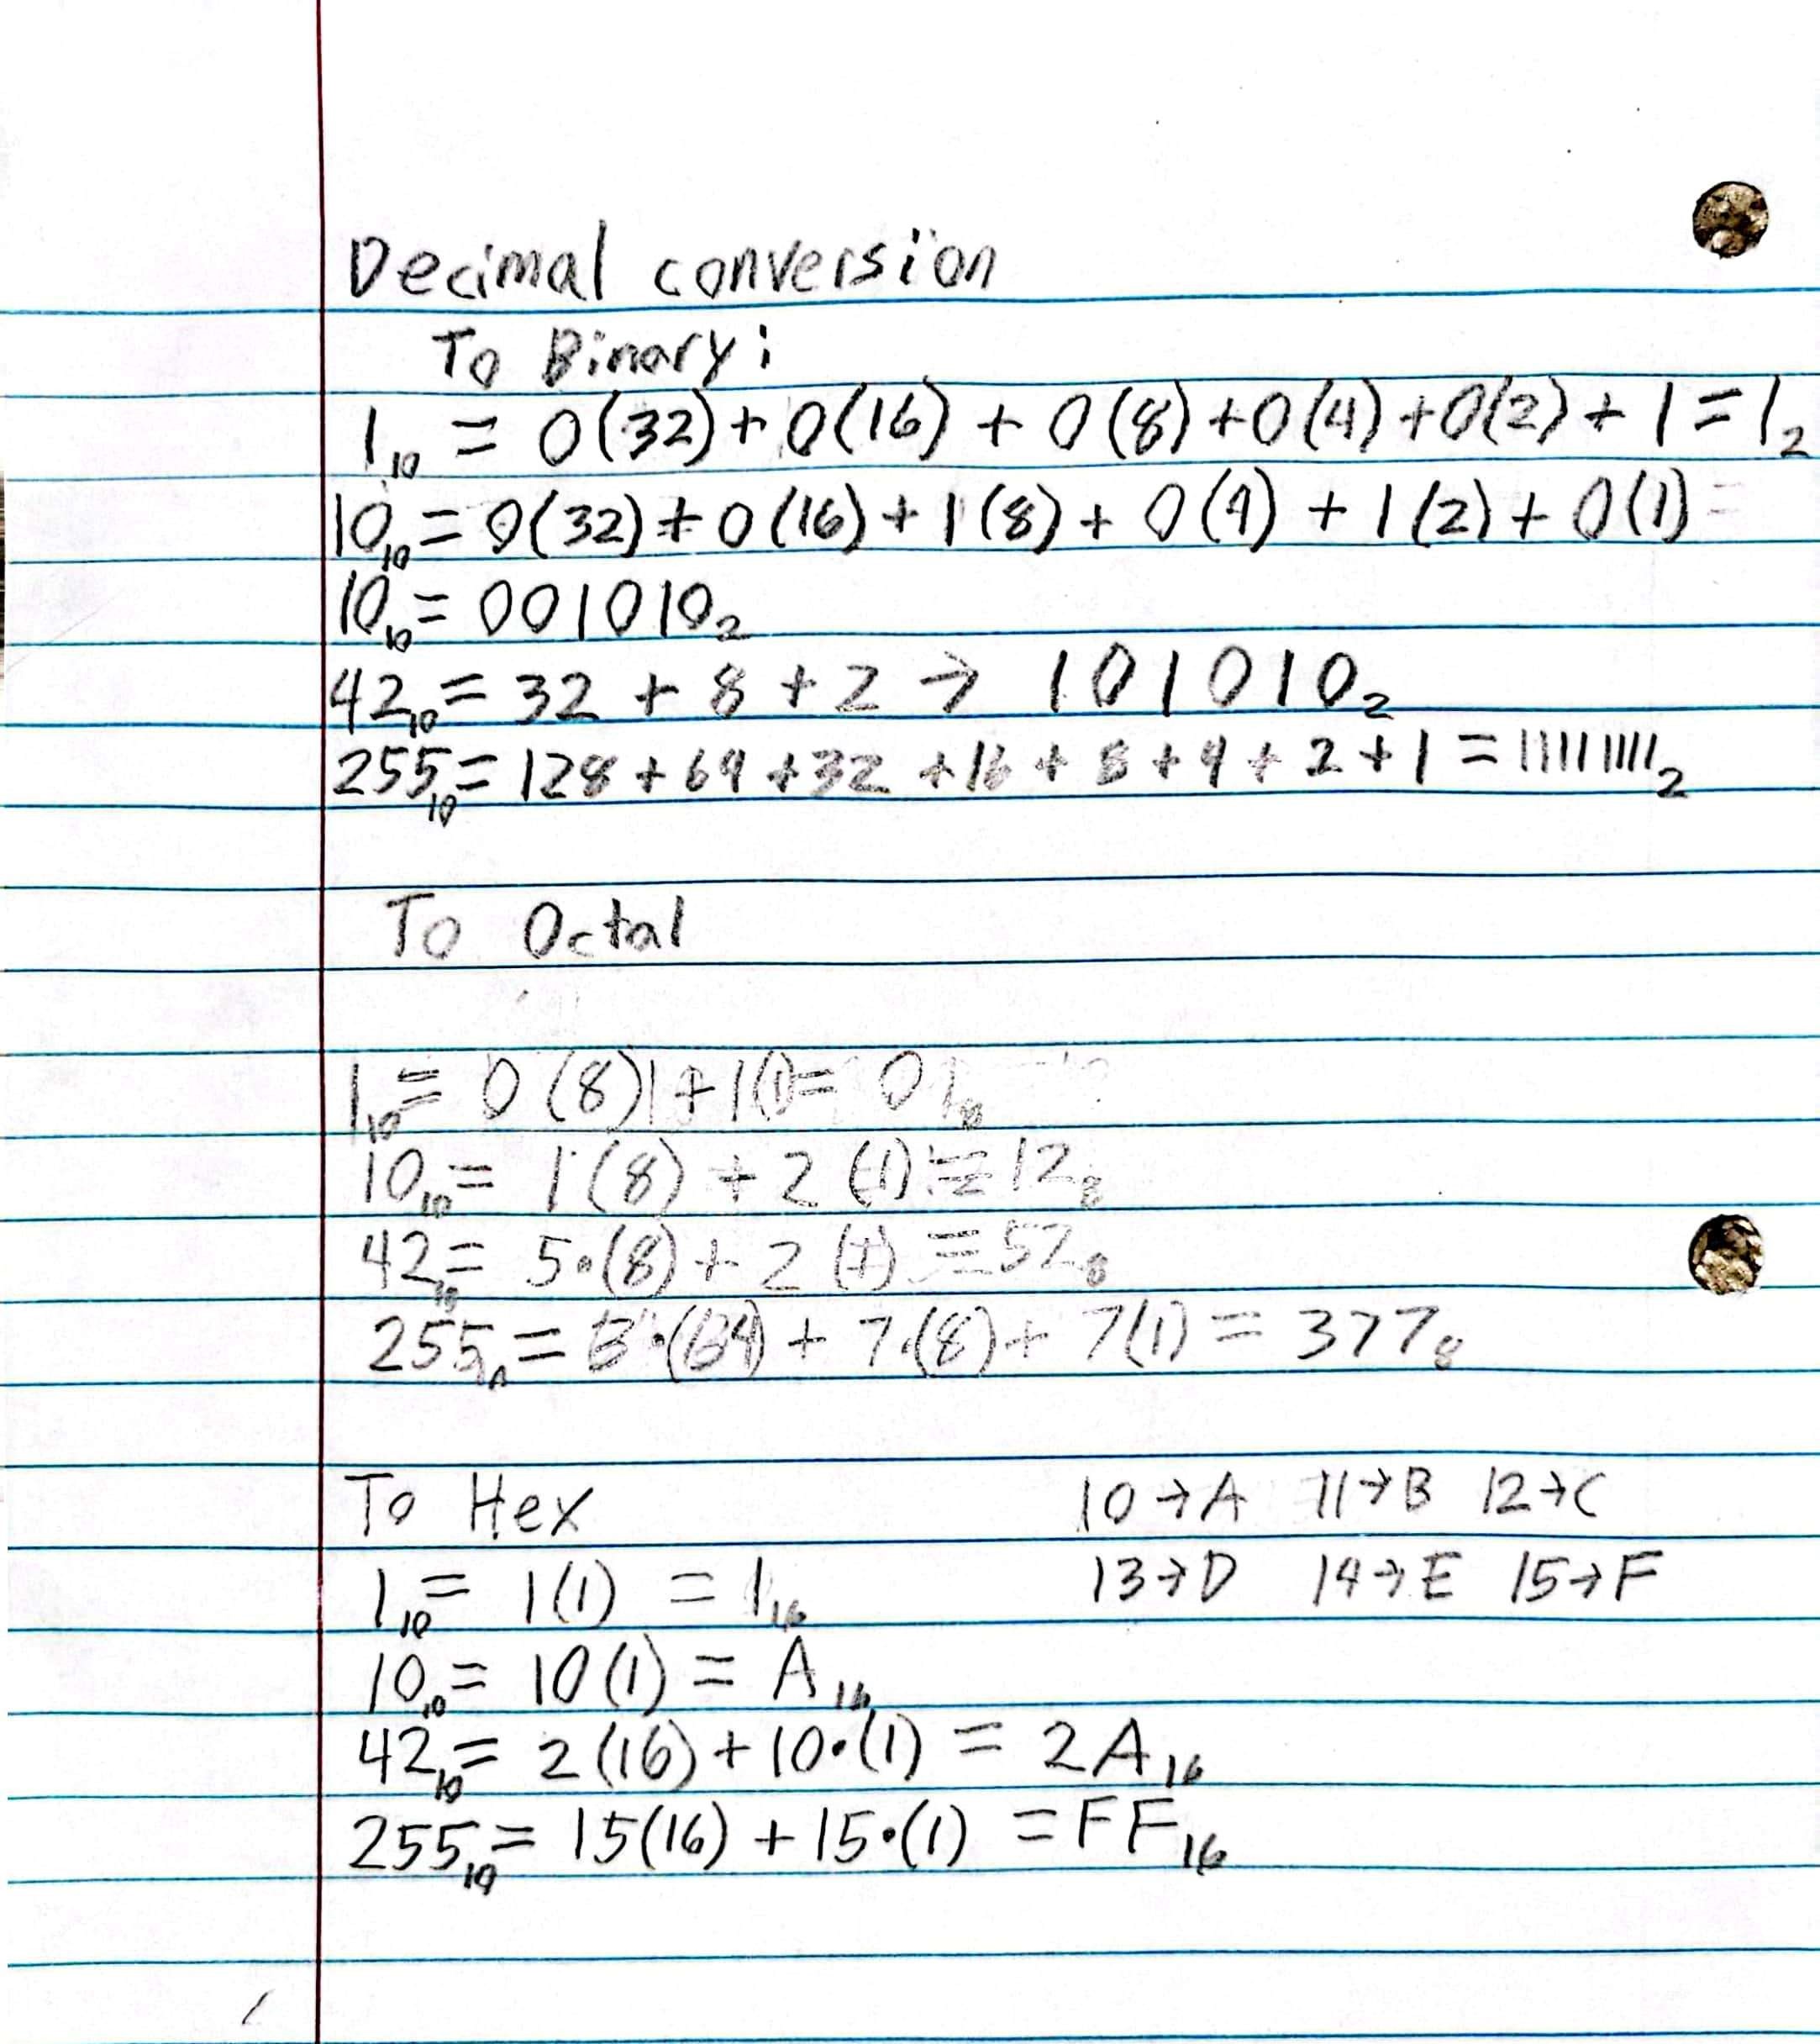 Decimal conversion
To Binary:
1₁₀ = 0(32) + 0(16) + 0(8) + 0(4) + 0(2) + 1 = 1₂
10₁₀ = 0(32) + 0(16) + 1(8) + 0(4) + 1(2) + 0(1) =
10₁₀ = 001010₂
42₁₀ = 32 + 8 + 2 → 101010₂
255₁₀ = 128 + 64 + 32 + 16 + 8 + 4 + 2 + 1 = 11111111₂
To Octal
1₁₀ = 0(8) + 1(1) = 01₈
10₁₀ = 1(8) + 2(1) = 12₈
42₁₀ = 5·(8) + 2(1) = 52₈
255₁₀ = 3·(64) + 7·(8) + 7(1) = 377₈
To Hex 10→A 11→B 12→C
13→D 14→E 15→F
1₁₀ = 1(1) = 1₁₆
10₁₀ = 10(1) = A₁₆
42₁₀ = 2(16) + 10·(1) = 2A₁₆
255₁₀ = 15(16) + 15·(1) = FF₁₆